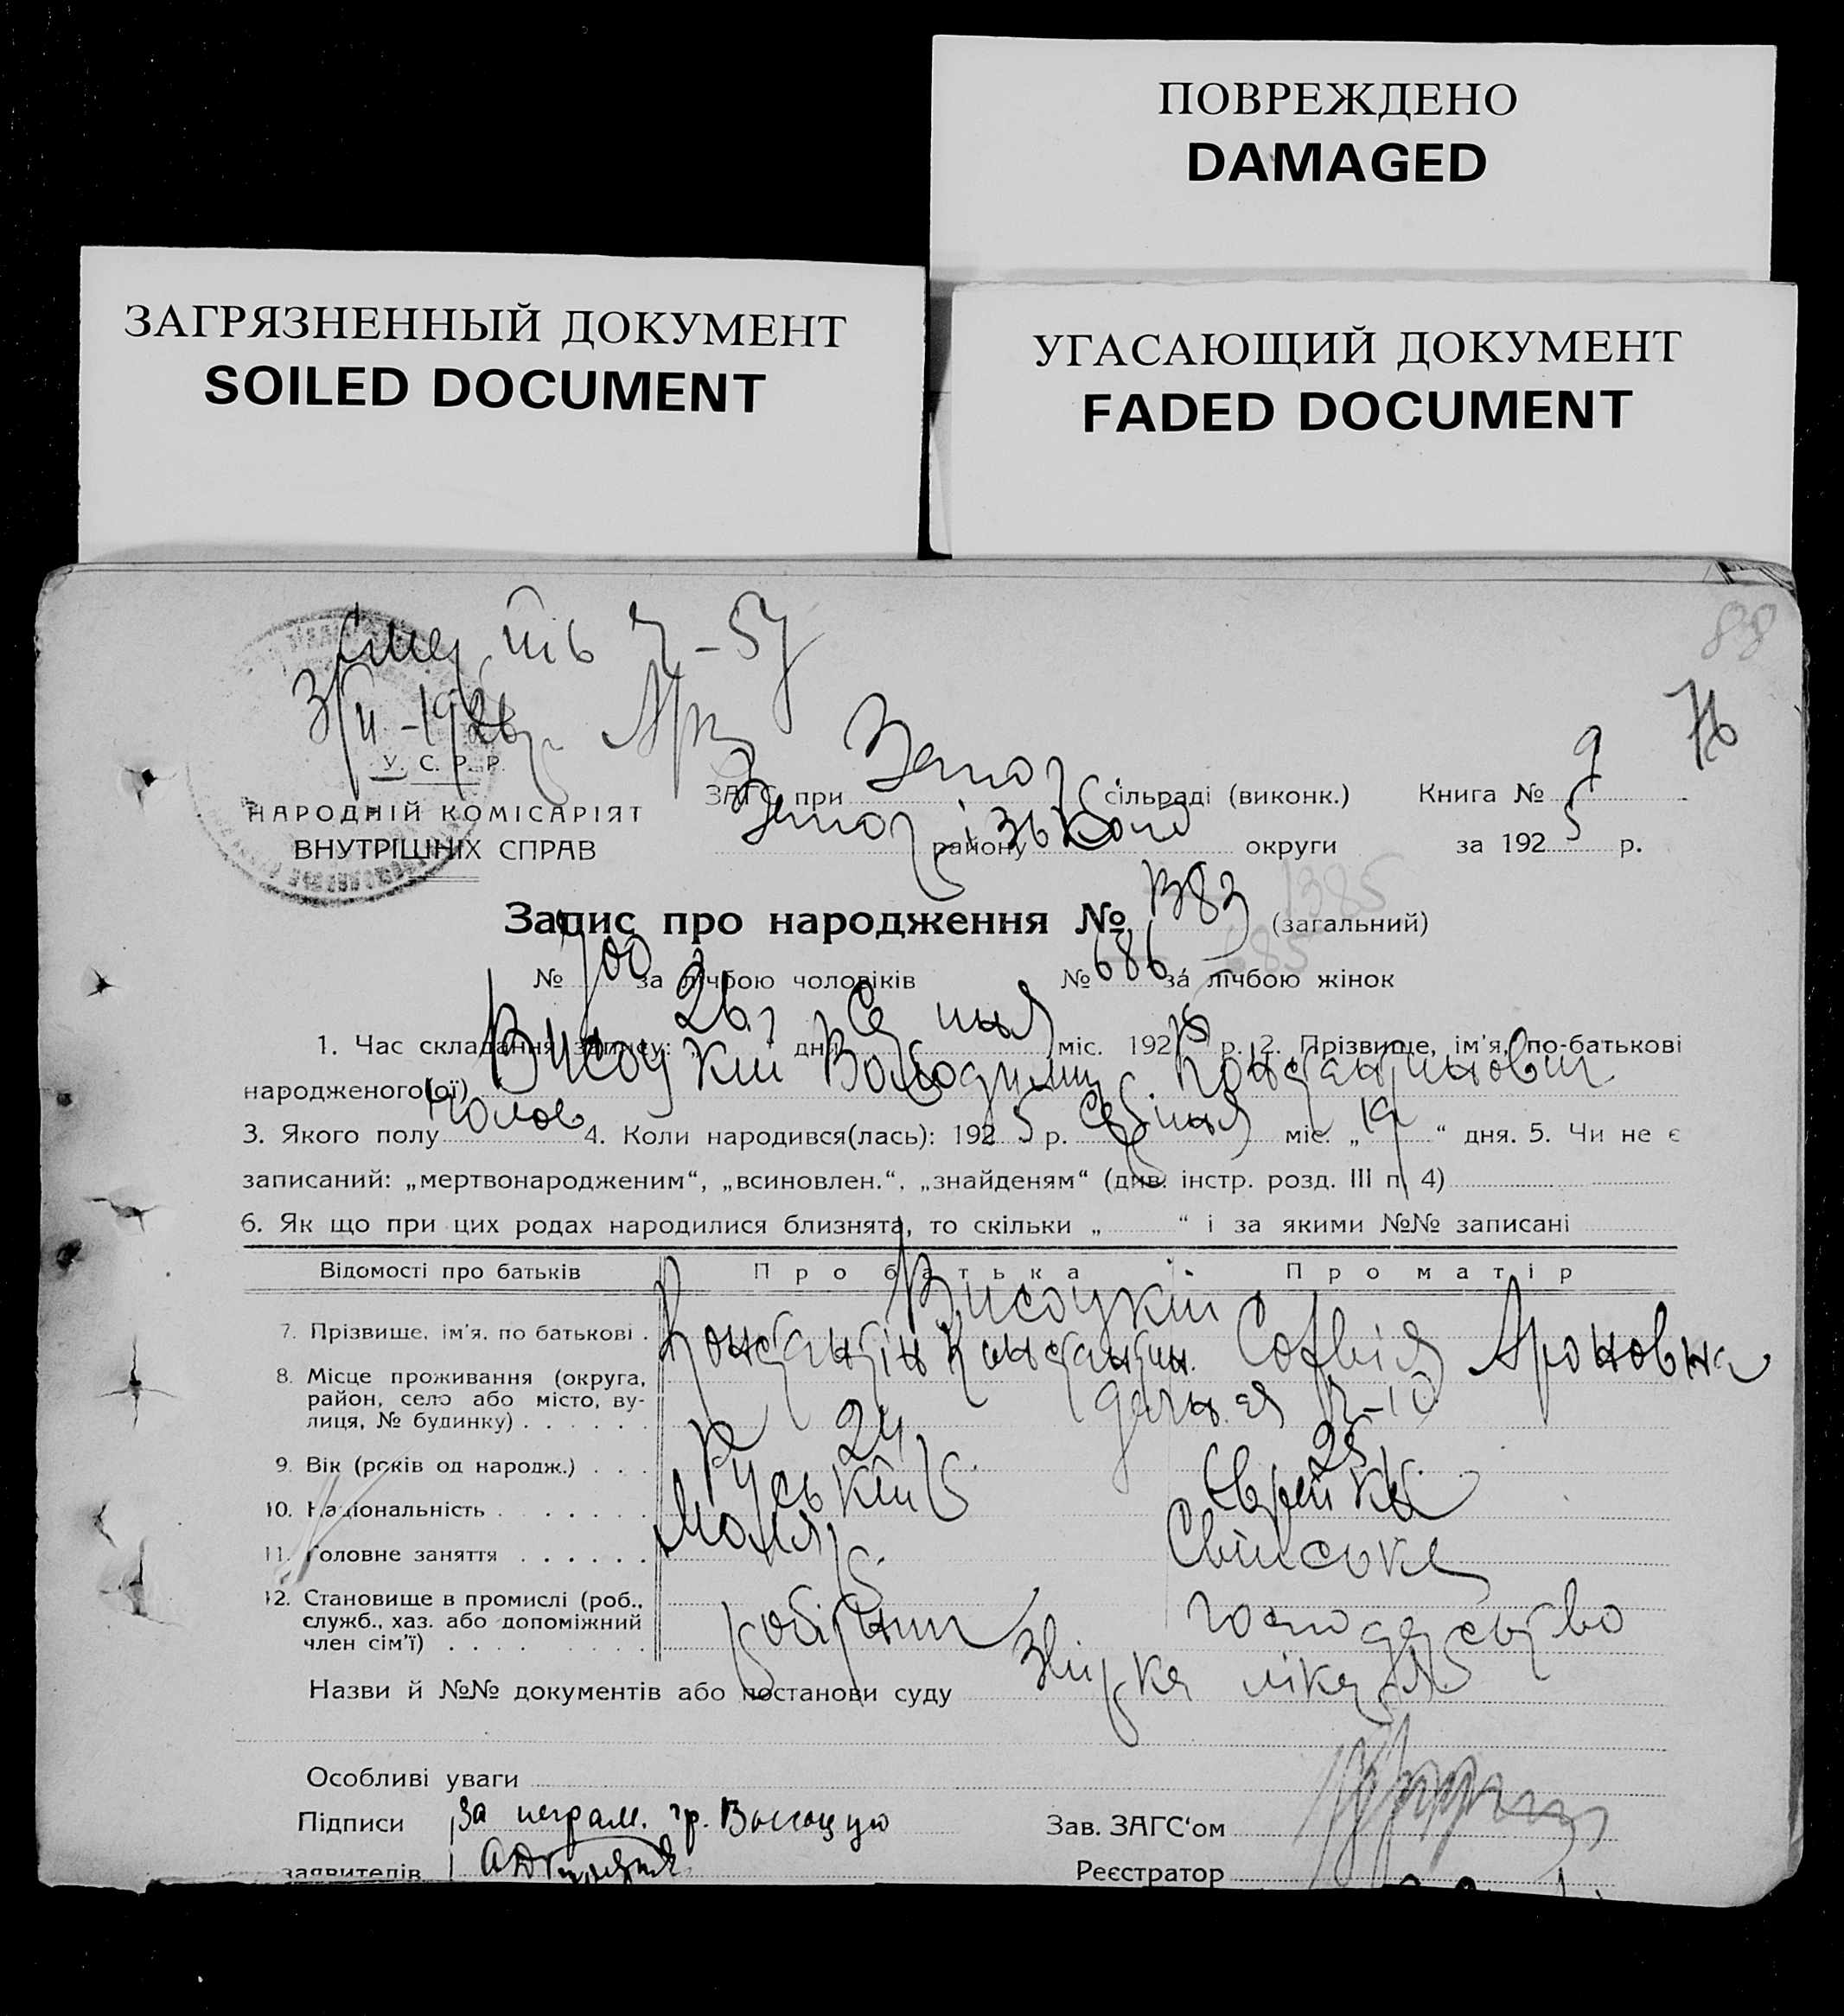 ПОВРЕЖДЕНО
DAMAGED
ЗАГРЯЗНЕННЫЙ ДОКУМЕНТ
SOILED DOCUMENT
УГАСАЮЩИЙ ДОКУМЕНТ
FADED DOCUMENT
88
76
У. С. Р. Р.
НАРОДНІЙ КОМІСАРІЯТ
ВНУТРІШНІХ СПРАВ
ЗАГС при Запор сільраді (виконк.) Книга № 9
району округи за 1925 р.
Запис про народження № 1383 (загальний) 1385
№ 700 за лічбою чоловіків № 686 за лічбою жінок 685
1. Час складання запису: „ 26 дня Серпня міс. 1925 р. 2. Прізвище, ім'я, по-батькові
народженого(ої) Висоцкий Володимир Константинович
3. Якого полу Чолов 4. Коли народився(лась): 1925 р. Серпня міс. „19“ дня. 5. Чи не є
записаний: „мертвонародженим“, „всиновлен.“, „знайденям“ (див. інстр. розд. III п. 4)
6. Як що при цих родах народилися близнята, то скільки „ “ і за якими №№ записані
Відомості про батьків Про батька Про матір
Висоцкий
7. Прізвище, ім'я, по батькові . Константін Константин. Софвія Ароновна
8. Місце проживання (округа,
район, село або місто, ву-
лиця, № будинку) . . . . . .
9. Вік (років од народж.) . . . 24 25
10. Національність . . . . . . . Руський Єврейка
11. Головне заняття . . . . . . Маляр Свійське
12. Становище в промислі (роб.,
служб., хаз. або допоміжний
член сім'ї) . . . . . . . . . робітник господарство
Назви й №№ документів або постанови суду Звирка лікаря
Особливі уваги
Підписи За неграм. гр. Высоцую Зав. ЗАГС'ом
заявителів Реєстратор